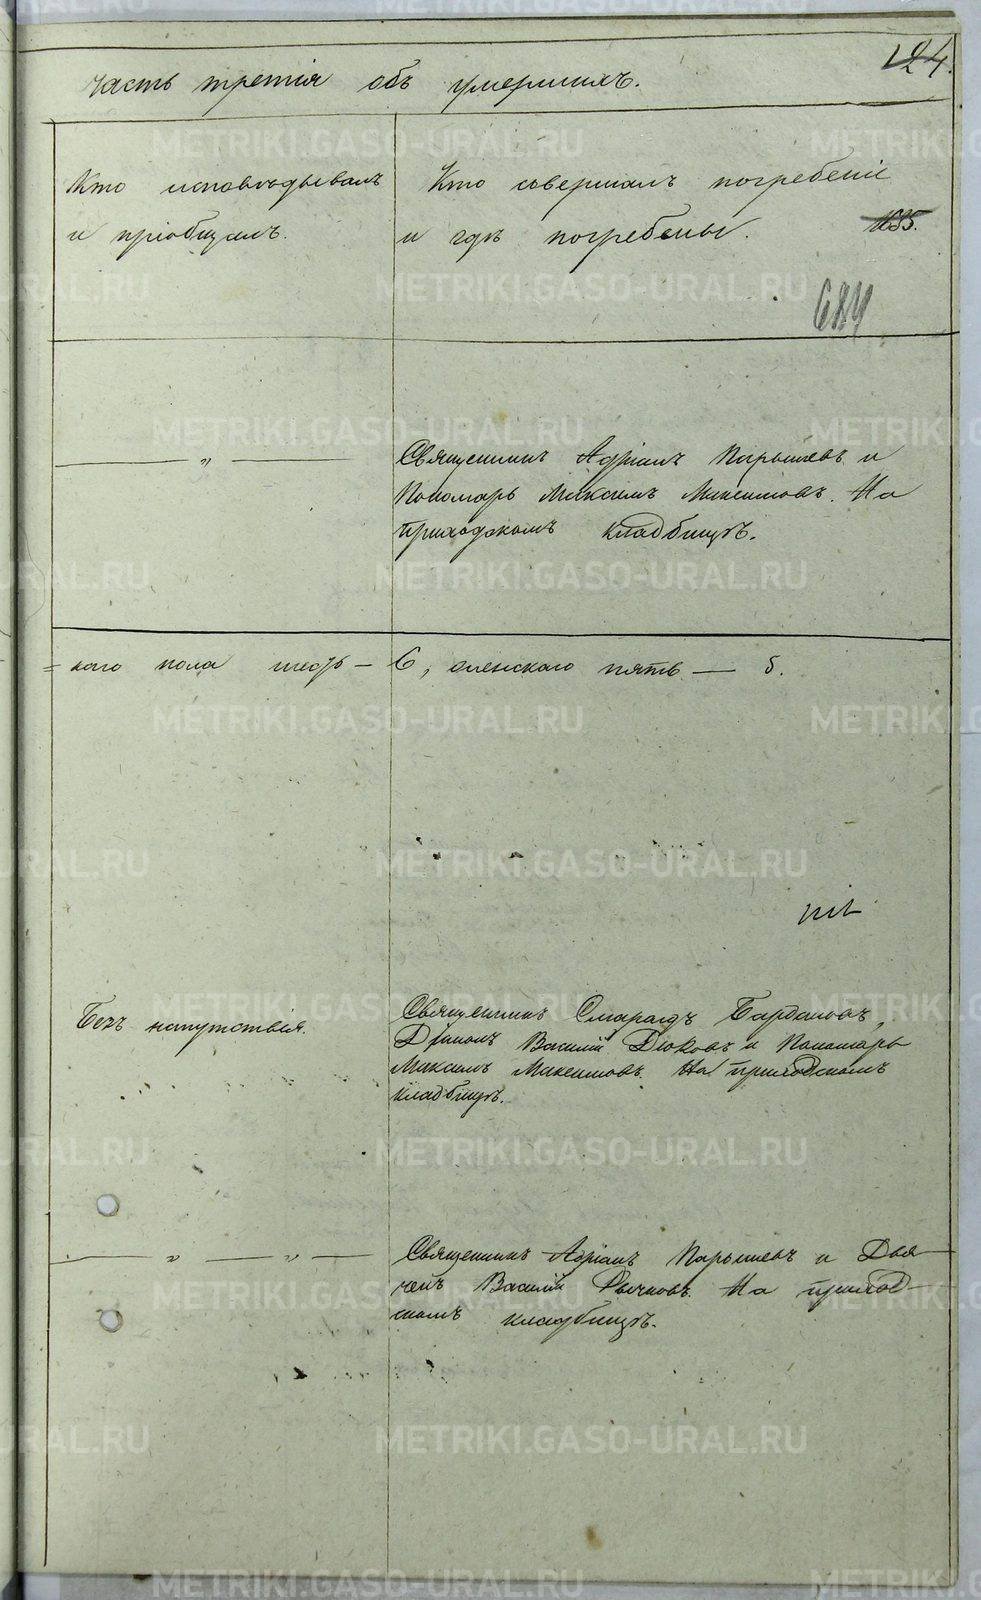 124.
часть третія объ умершихъ.
Кто исповѣдывалъ
и пріобщалъ.
Кто совершалъ погребеніе
и гдѣ погребены.
1635.
684
„
Священникъ Адріанъ Парышевъ и
Пономарь Максимъ Максимовъ. На
приходскомъ кладбищѣ.
=каго пола шесть – 6, женскаго пять — 5.
Безъ напутствія.
Священникъ Смарагдъ Бардановъ,
Діаконъ Василій Дюковъ и Пономарь
Максимъ Максимовъ. На приходскомъ
кладбищѣ.
„ „
Священникъ Адріанъ Парышевъ и Дья
чекъ Василій Рычковъ. На приход
скомъ кладбищѣ.
METRIKI.GASO-URAL.RU